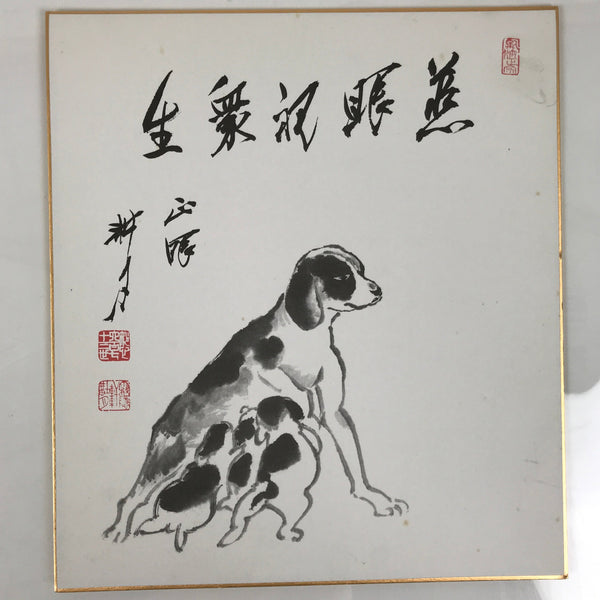 慈眼視衆生
正眼
耕月